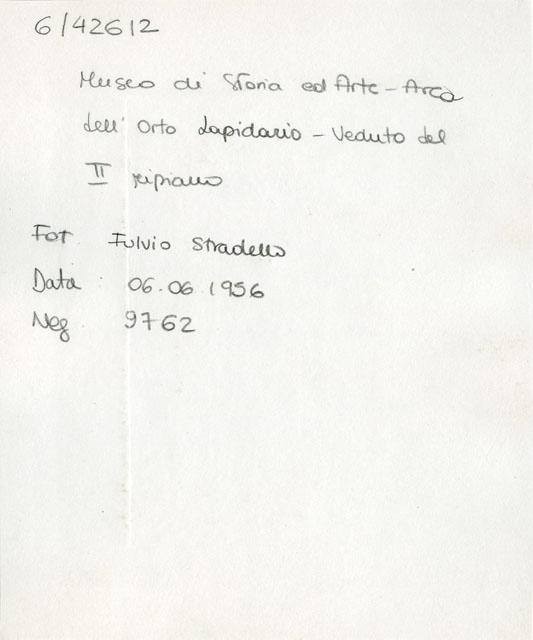 6/42612
Museo di Storia ed Arte - Area
dell' Orto Lapidario - Veduta del
II ripiano
Fot. Fulvio Stradello
Data: 06.06.1956
Neg. 9762